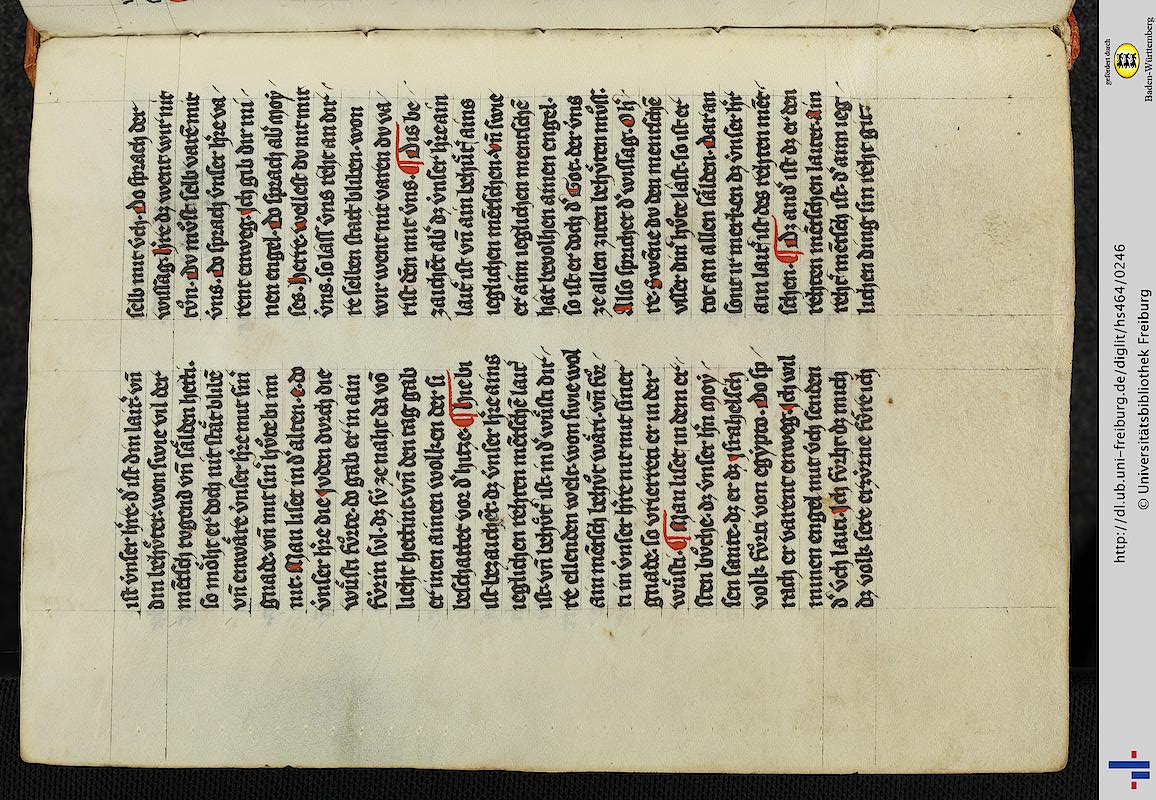 ist v́nser hr̄e. d' ist din lait'. vn̄
din behv́ter. won swie vil der
mēsch tugend vn̄ sälden hetti.
so möht er doch nit stät blibē
vn̄ enwäre v́nser hr̄e mit sin̄
gnadē. vn̄ mit sin' hv̊te bi im
nit. Man liset in d' alten .e. do
v́nser hr̄e die juden durch die
wůsti fůrte. do gab er in ain
fv́rin sul. dz siv ze naht da vō
lieht hettint. vn̄ den tag gab
er inen ainen wolken der si
beschattet vor d' hitze. ¶ Hie bi
ist bezaichet. dz v́nser hr̄e ains
ieglichen rehten mēschē lait'
ist. vn̄ behv̊t' ist. in d' wůsti dir'
re ellenden welt. won swie wol
ain mēsch behv̊t wäri. vn̄ fůr
ti in v́nser hr̄e nit mit siner
gnadē. so vrierreti er in der
wůsti. ¶ Man liset in dem er'
sten bůche. dz v́nser hr̄n moy
sen sante. dz er dz ysrahelsch
volk fůrti von egypto. Do sp
rach er varent enweg. ich wil
minen engel mit v́ch senden
d' v́ch laiti. Ich fvrht dz mich
dz volk sere erzvrne fůre ich
selb mit v́ch. Do sprach der
wissag. hr̄re dz went wir nit
tůn. Dv můst selb varē mit
v́ns. Do sprach v́nser hr̄e va
rent enweg. ich gib dir mi
nen engel. Do sprach ab' moy
ses. herre. wellest dv nit mit
v́ns. so lass v́ns reht an dir'
re selben statt bliben. won
wir went nit varen dv va
rist dēn mit v́ns. ¶ Dis be
zaichet ab' dz v́nser hr̄e ain
lait' ist vn̄ ain behv̊t' ains
ieglichen mēschen. vn̄ swie
er aim ieglichen menschē
hat bevolhen ainen engel.
so ist er doch d' Got. der v́ns
ze allen ziten behůten můss.
Also sprichet d' wissag. O h
re. swēne dv den menschē
vsser din' hůte last. so ist er
tot an allen sälden. Dar an
sönt ir merken dz v́nser hr̄
ain lait' ist des rehten mēt
schen. ¶ Dz and' ist dz er den
rehten mēschen lutert. Aim
reht' mēsch ist. d' aim ieg
lichen ding sin reht git.
gefördert durch
Baden-Württemberg
http://dl.ub.uni-freiburg.de/diglit/hs464/0246
© Universitätsbibliothek Freiburg